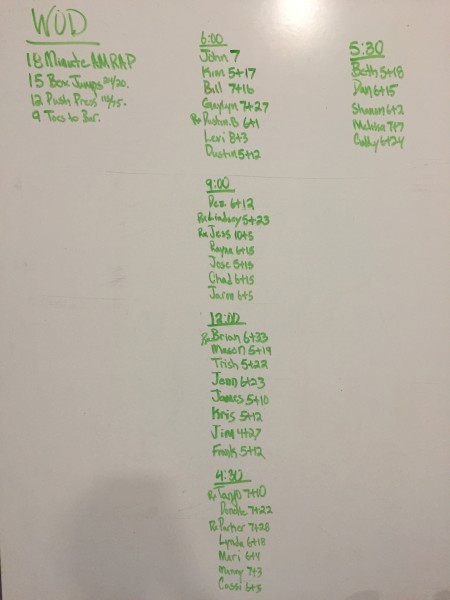 WOD
18 Minute AMRAP
15 Box Jumps 24/20.
12 Push Press 115/75.
9 Toes to Bar.
6:00
John 7
Kim 5+17
Bill 7+16
7+27
Rx Dustin.B 6+1
Levi 8+3
Dustin 5+12
9:00
Dez 6+12
Rx Lindsey 5+23
Rx Jess 10+5
Rayna 6+18
Jose 5+15
Chad 6+15
Jaron 6+5
12:00
Rx Brian 6+33
Mason 5+19
Trish 5+22
Jenn 6+23
James 5+10
Kris 5+12
Jim 4+27
Frank 5+12
4:30
Rx 7+10
7+22
Rx Parker 7+28
Lynda 6+18
Meri 6+4
Manny 7+3
Cassi 6+5
5:30
Beth 5+18
Dan 6+15
Sharon 6+2
Melissa 7+7
Cathy 6+24